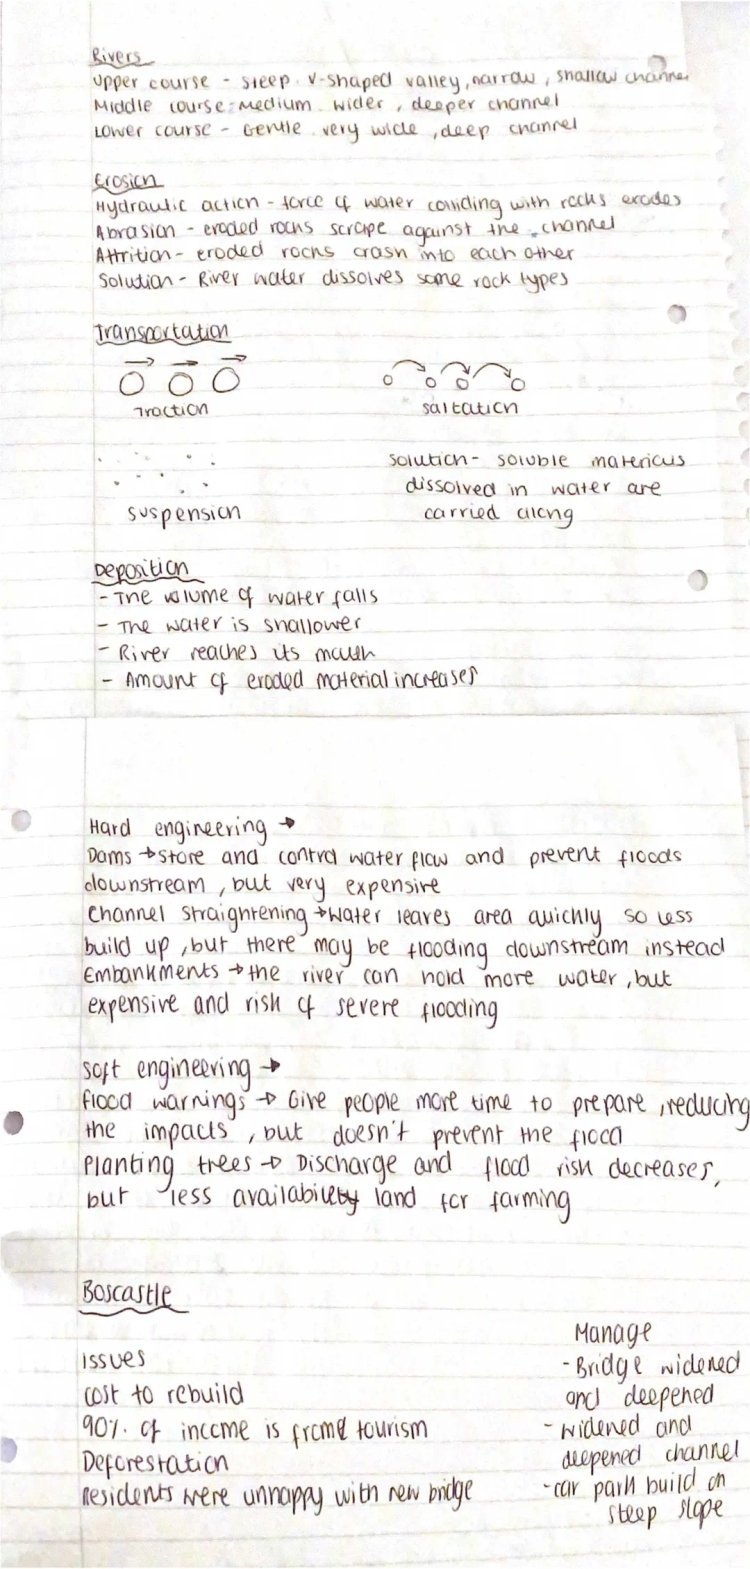 Rivers
Upper course - steep v-shaped valley, narrow, shallow channel
Middle course - Medium wider, deeper channel
Lower course - Gentle very wide, deep channel
Erosion
Hydraulic action - force of water colliding with rocks erodes
Abrasion - eroded rocks scrape against the channel
Attrition - eroded rocks crash into each other
Solution - River water dissolves some rock types
Transportation
Traction
saltation
suspension
solution - soluble materials
dissolved in water are
carried along
Deposition
- The volume of water falls
- The water is shallower
- River reaches its mouth
- Amount of eroded material increases
Hard engineering →
Dams → store and control water flow and prevent floods
downstream, but very expensive
Channel straightening → water leaves area quickly so less
build up, but there may be flooding downstream instead
Embankments → the river can hold more water, but
expensive and risk of severe flooding
Soft engineering →
flood warnings → Give people more time to prepare, reducing
the impacts, but doesn't prevent the flood
Planting trees → Discharge and flood risk decreases,
but less availability land for farming
Boscastle
issues
cost to rebuild
90% of income is from tourism
Deforestation
Residents were unhappy with new bridge
Manage
- Bridge widened
and deepened
- widened and
deepened channel
- car park build on
steep slope